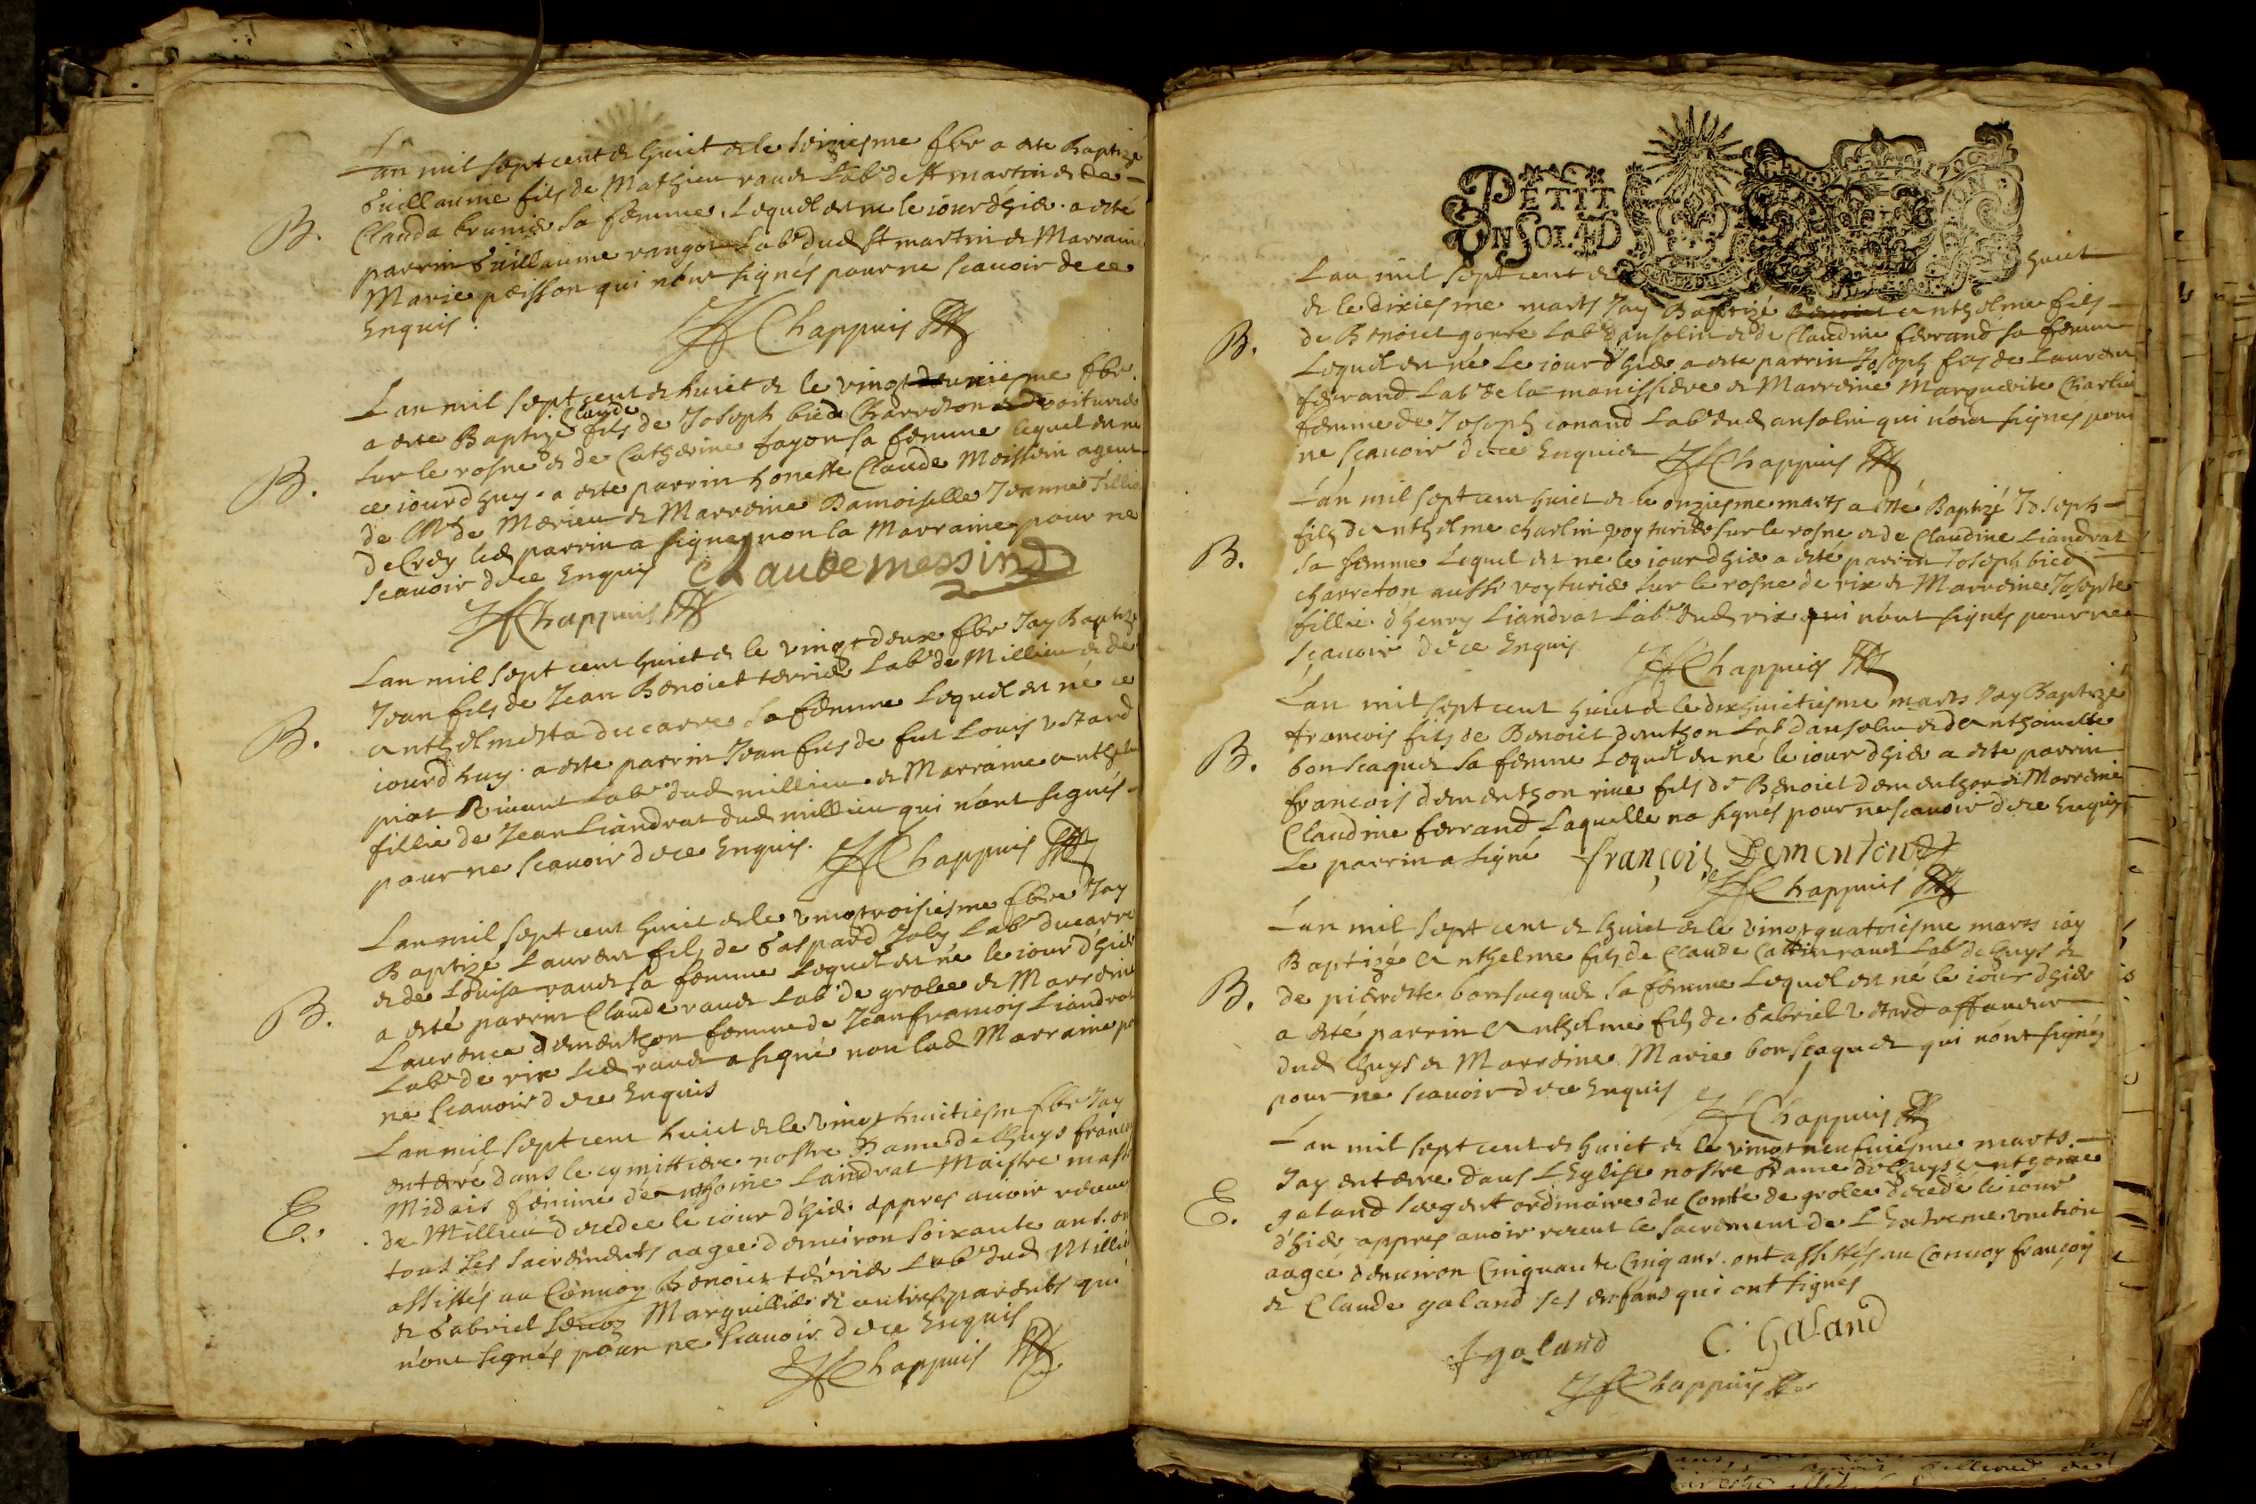 L'an mil sept cent & huict & le seiziesme fbr a esté Baptizé
Guillaume fils de Mathieu raude Labr de St martin & de
B. Clauda brunier sa femme, Lequel est ne le iour d'hier. a esté
parrin Guillaume rangot Labr dud St martin & Marraine
Marie poisson qui n'ont signés pour ne scauoir de ce
Enquis.
Chappuis
Lan mil sept cent & huict & le vingt uniesme fbr.
a este Baptizé Claude fils de Joseph bied Charreton voiturier
B. sur le rosne & de Catherine fayon sa femme lequel est ne
ce iourdhuy. a esté parrin honeste Claude Moissein agent
de Mr de Merieu & Marreine Damoiselle Jeanne Tillier
de Crey led parrin a signé non la Marraine pour ne
scauoir de ce Enquis Claude messind
Chappuis
Lan mil sept cent huict & le vingt deux fbr Jay Baptizé
Jean fils de Jean Benoict terrier Labr de Millieu & de
B. anthelmesta ducarre sa femme Lequel est né ce
iourdhuy. a este parrin Jean fils de feu Louis vetard
piot viuant Labr dud millieu & Marraine anthelme
fillie de Jean Liandrat dud millieu qui n'ont signés
pour ne scauoir de ce Enquis. Chappuis
Lan mil sept cent huict & le vingtroisiesme fbre Jay
Baptizé Laurent fils de Gaspard Joly Labr ducarre
& de Louisa raude sa femme Lequel est né le iour d'hier
B. a esté parrin Claude raude Labr de grolee & Marreine
Laurence dementhon femme de Jean francois Liandrat
Labr de rix led raude a signé non lad Marraine pr
ne scauoir de ce Enquis
Lan mil sept cent huict & le vingt huictiesm fbr Jay
enterré dans le cymittiere nostre Dame de lhuys francoise
E. Midais femme de anthoine Landrat Maistre masson
de Millieu decedee le iour d'hier appres auoir receue
tous les sacrements aagee d'enuiron soixante ans. ont
assistés au Conuoy benoict terrier Labr dud Millieu
& Gabriel secuoz Marguillier & autres parents qui
n'ont signés pour ne scauoir de ce Enquis
Chappuis
PETIT
UN SOL LAD
Lan mil sept cent & huict
& le dixiesme marts Jay Baptizé anthelme fils
B. de Benoict goure Labr dansolin & de Claudine ferrand sa femme
Lequel est né Le iour d'hier a este parrin Joseph fils de Laurent
ferrand Labr de la manissiere & Marreine Marguerite Charlin
femme de Joseph conand Labr dud ansolin qui n'ont signes pour
ne scauoir de ce Enquis Chappuis
L'an mil sept cent huict & le onziesme marts a été Baptizé Joseph
fils d'anthelme charlin voyturier sur le rosne & de Claudine Liandrat
B. sa femme Lequel est ne le iour d'hier a este parrin Joseph bied
charreton aussi voyturier sur le rosne de rix & Marreine Josepte
fillie d'henry Liandrat Labr dud rix qui n'ont signés pour ne
scauoir de ce Enquis Chappuis
Lan mil sept cent huict & le dixhuictiesme marts Jay Baptizé
francois fils de Benoict dementhon Labr dansolin & d'anthoinette
B. bonscaquet sa femme Lequel est né le iour d'hier a este parrin
francois dementhon rine fils de Benoict dementhon & Marreine
Claudine ferrand Laquelle na signés pour ne scauoir de ce Enquis
Le parrin a signé françois Dementon
Chappuis
Lan mil sept cent & huict & le vingt quatriesme marts iay
Baptizé anthelme fils de Claude Cattin raude Labr de lhuys &
B. de pierrette bonsacquet sa femme Lequel est né le iour d'hier
a esté parrin anthelme fils de Gabriel vetard affaneur
dud lhuys & Marreine Marie bonscaquet qui n'ont signés
pour ne scauoir de ce Enquis
Chappuis
Lan mil sept cent & huict & le vingt neufuiesme marts.
Jay enterre dans L'Eglise nostre Dame de lhuys anthoine
E. galand sergent ordinaire du Comté de grolee decede le iour
d'hier appres auoir receut le sacrement de L'Extreme onction
aagée d'enuiron Cinquante Cinq ans. ont assistés au Conuoy francois
& Claude galand ses enfans qui ont signés
f galand C. Galand
Chappuis